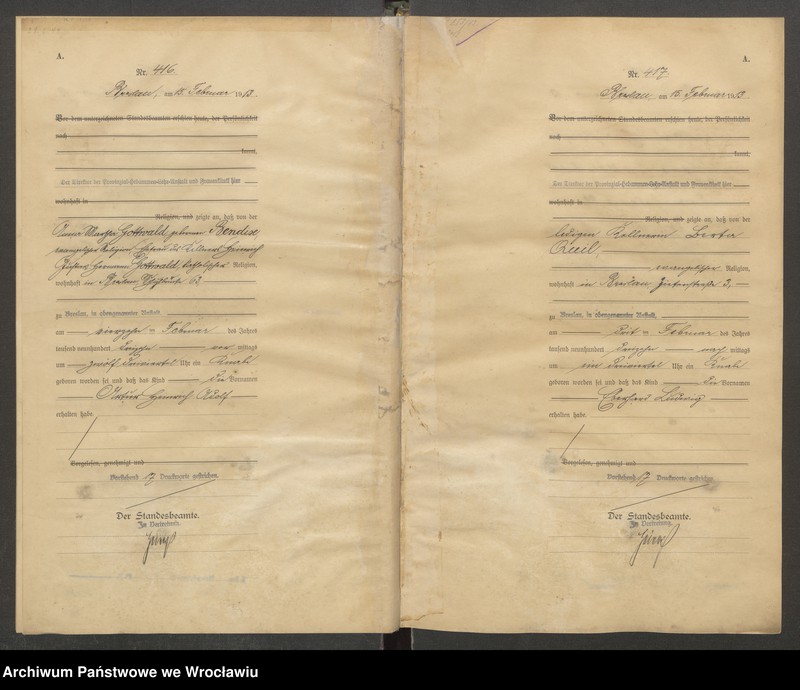 A.
Nr. 416.
Breslau, am 15. Februar 1913.
Vor dem unterzeichneten Standesbeamten erschien heute, der Persönlichkeit
nach
kannt,
Der Direktor der Provinzial-Hebammen-Lehr-Anstalt und Frauenklinik hier
wohnhaft in
Religion, und zeigte an, daß von der
Anna Martha Gottwald geborenen
evangelischer Religion, Ehefrau des Kellners Heinrich
Hermann Gottwald, katholischer Religion,
wohnhaft in Breslau,
zu Breslau, in obengenannter Anstalt
am vierzehn ten Februar des Jahres
tausend neunhundert dreizehn vor mittags
um zwölf dreiviertel Uhr ein Knabe
geboren worden sei und daß das Kind die Vornamen
Heinrich Adolf
erhalten habe.
Vorgelesen, genehmigt und
Vorstehend 17 Druckworte gestrichen.
Der Standesbeamte.
In Vertretung.
A.
Nr. 417.
Breslau, am 15. Februar 1913
Vor dem unterzeichneten Standesbeamten erschien heute, der Persönlichkeit
nach
kannt,
Der Direktor der Provinzial-Hebammen-Lehr-Anstalt und Frauenklinik hier
wohnhaft in
Religion, und zeigte an, daß von der
ledigen Kellnerin Berta
evangelischer Religion,
wohnhaft in Breslau
zu Breslau, in obengenannter Anstalt
am Februar des Jahres
tausend neunhundert dreizehn nach mittags
um ein dreiviertel Uhr ein Knabe
geboren worden sei und daß das Kind die Vornamen
Eberhard Ludwig
erhalten habe.
Vorgelesen, genehmigt und
Vorstehend 17 Druckworte gestrichen.
Der Standesbeamte.
In Vertretung.
Archiwum Państwowe we Wrocławiu